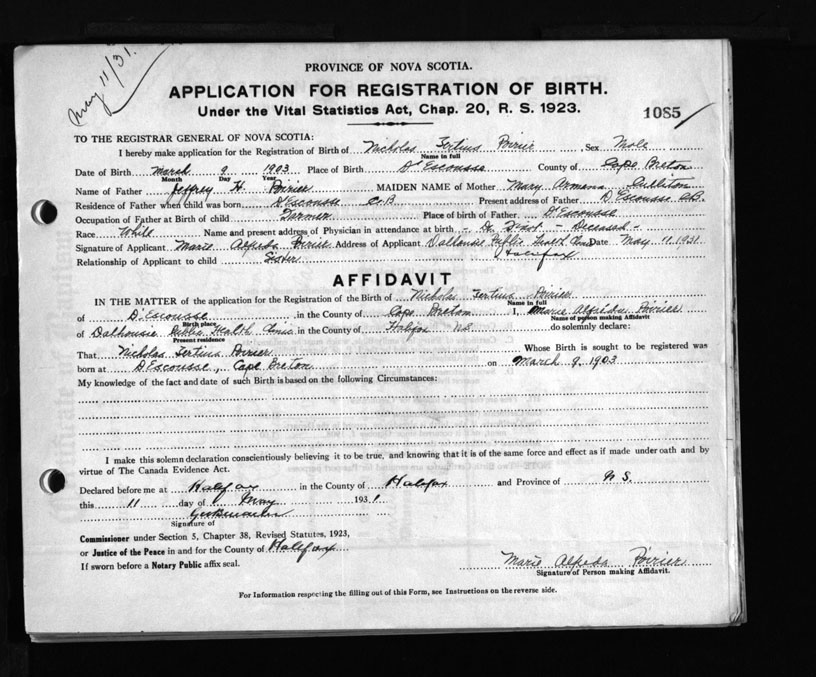 May 11/31.
PROVINCE OF NOVA SCOTIA.
APPLICATION FOR REGISTRATION OF BIRTH.
Under the Vital Statistics Act, Chap. 20, R. S. 1923.
1085
TO THE REGISTRAR GENERAL OF NOVA SCOTIA:
I hereby make application for the Registration of Birth of Nicholas Tertius Poirier Sex Male
Name in full
Date of Birth March 9 1903 Place of Birth D'Escousse County of Cape Breton
Month Day Year
Name of Father Jeffrey H. Poirier MAIDEN NAME of Mother Mary
Residence of Father when child was born D'Escousse C.B Present address of Father D'Escousse C.B.
Occupation of Father at Birth of child Farmer Place of birth of Father D'Escousse
Race White Present address of Physician in attendance at birth - Dr. - Deceased -
Signature of Applicant Marie Alfreda Poirier Address of Applicant Dalhousie Public Health Clinic Date May 11. 1931
Halifax
Relationship of Applicant to child Sister
AFFIDAVIT
IN THE MATTER of the application for the Registration of the Birth of Nicholas Tertius Poirier
Name in full
of D'Escousse, in the County of Cape Breton I, Marie Alfreda Poirier
Birth place Name of person making Affidavit
of Dalhousie Public Health Clinic in the County of Halifax N.S. do solemnly declare:
Present residence
That Nicholas Tertius Poirier Whose Birth is sought to be registered was
born at D'Escousse, Cape Breton on March 9, 1903
My knowledge of the fact and date of such Birth is based on the following Circumstances:
I make this solemn declaration conscientiously believing it to be true, and knowing that it is of the same force and effect as if made under oath and by
virtue of The Canada Evidence Act.
Declared before me at Halifax in the County of Halifax and Province of N.S.
this 11 day of May 1931
Signature of
Commissioner under Section 5, Chapter 38, Revised Statutes, 1923,
or Justice of the Peace in and for the County of Halifax
If sworn before a Notary Public affix seal.
Marie Alfreda Poirier
Signature of Person making Affidavit.
For Information respecting the filling out of this Form, see Instructions on the reverse side.